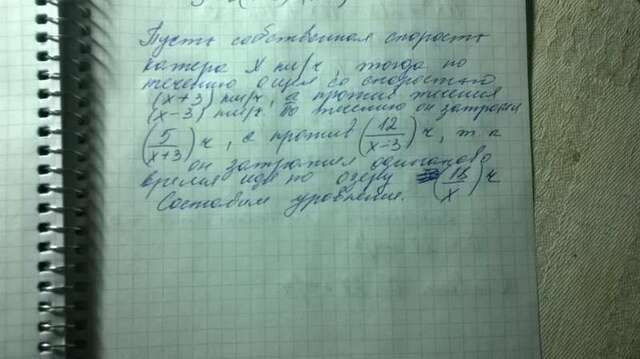 Пусть собственная скорость
катера x км/ч, тогда по
течению он шёл со скоростью
(x+3) км/ч, а против течения
(x-3) км/ч. По течению он затратил
(5/(x+3)) ч, а против (12/(x-3)) ч, т.к
он затратил одинаково
время идя по озеру (18/x) ч
Составим уравнение.